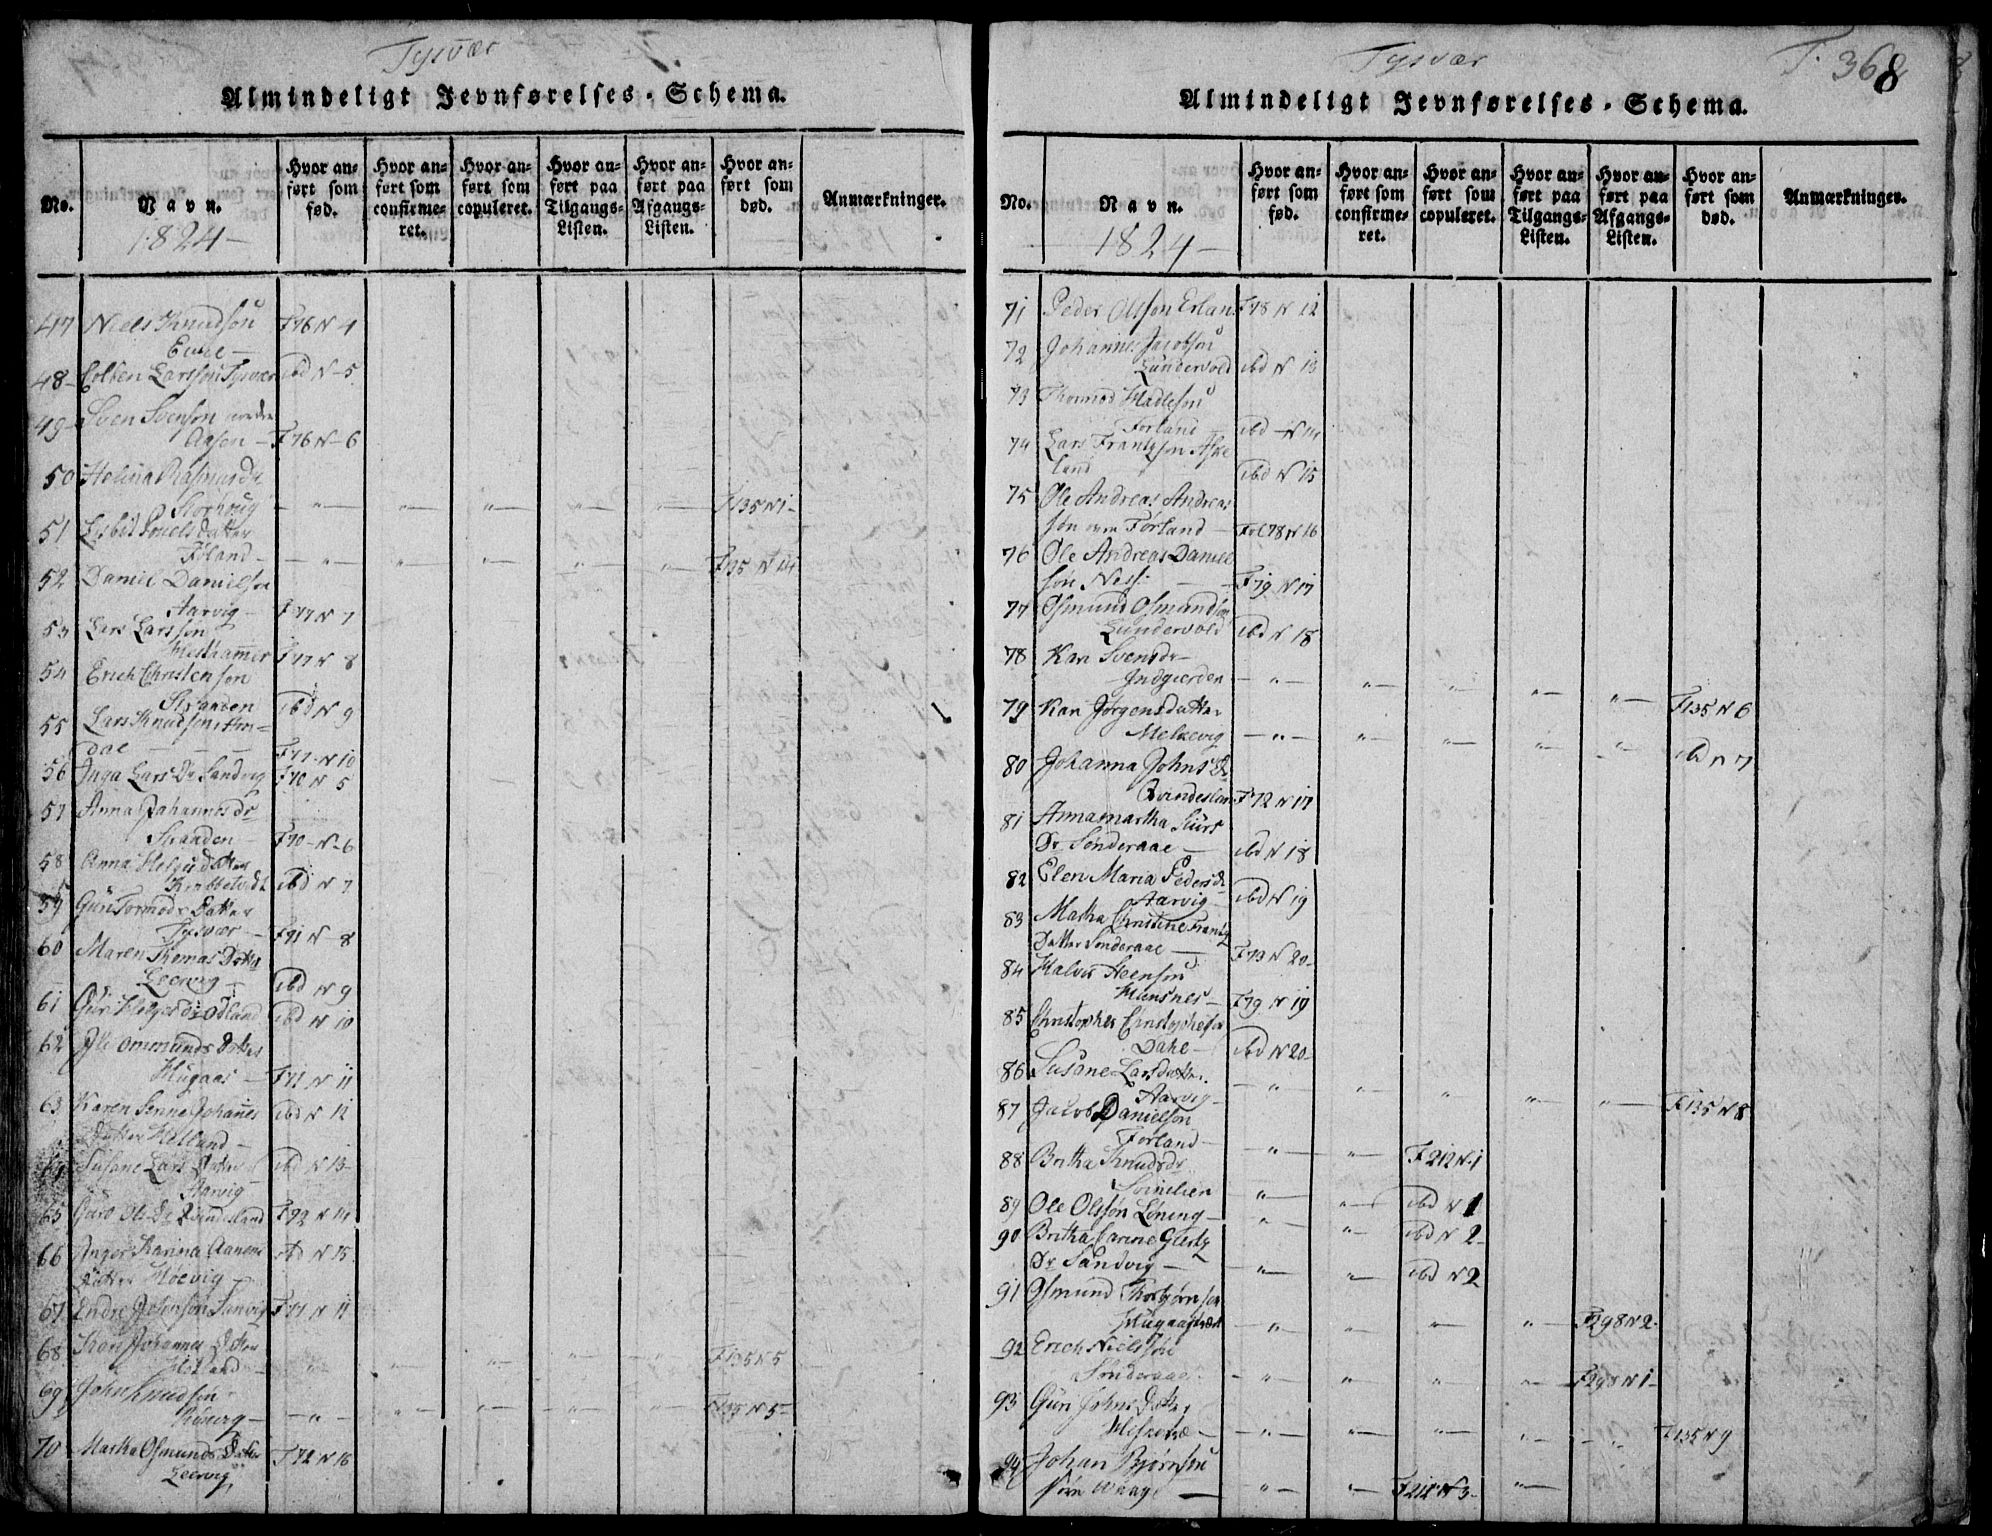 Tysvær
Almindeligt Jevnførelses-Schema.
No.
Navn.
1824
Hvor anført som fød.
Hvor anført som confirmeret.
Hvor anført som copuleret.
Hvor anført paa Tilgangs-Listen.
Hvor anført paa Afgangs-Listen.
Hvor anført som død.
Anmærkninger.
47 Niels Knudsøn F76 N 4
48 Colben Larssøn Tysvær ibd N 5
49 Sven Svensøn nordre
Agsen F76 N 6
50 Helina Rasmusdr
Storhoug F135 N1
51 Lisbet Povels datter
Føland F135 N
52 Daniel Danielsøn
Aarvig F77 N 7
53 Lars Larssøn
Westhammer F77 N 8
54 Erich Christensøn
Stranden ibd N 9
55 Lars Knudsøn Am=
dal F77 N 10
56 Inga Lars Dr Sandvig F70 N 5
57 Anna Johannes dr
Stranden F70 N 6
58 Anna Helge datter
Krabbetvedt ibd N 7
59 Guri Tormods Datter
Tysvær F71 N 8
60 Maren Thomas Datter
Leervig ibd N 9
61 Guri Helges dr Odland ibd N 10
62 Ommunds Datter
Hugaas F71 N 11
63 Karen Serine Johannes ibd N 12
Datter Helland
64 Susane Lars Datter ibd N 13
Aarvig
65 Guro Ols Dr Qvindesland F72 N 14
66 Inger Karina Aanens ibd N 15
Datter Høevig
67 Endre Johnsøn Sanvig F77 N 11
68 Kari Johannes Datter
F135 N 5
69 John Knudsøn
F135 N 5
70 Martha Osmunds Datter F72 N 16
Leervig
Tysvær
F. 368
Almindeligt Jevnførelses-Schema.
No.
Navn.
1824
Hvor anført som fød.
Hvor anført som confirmeret.
Hvor anført som copuleret.
Hvor anført paa Tilgangs-Listen.
Hvor anført paa Afgangs-Listen.
Hvor anført som død.
Anmærkninger.
71 Peder Olssøn Erlan F78 N 12
72 Johannes Jacobsøn
Lundervold ibd N 13
73 Thormod Madlesøn
Forland ibd N 14
74 Lars Frantzsøn Aske
land ibd N 15
75 Ole Andreas Andreas
søn Førland Fol 78 N 16
76 Ole Andreas Daniel
søn Ness F79 N 17
77 Osmund Osmundsøn
Lundervold ibd N 18
78 Kari Svensdr
Indgierden F135 N 6
79 Kari Jørgensdatter
Melkevig ibd N 7
80 Johanna Johns Dr
Qvindeslan F72 N 17
81 Annamartha Siurs
Dr Sønderaae ibd N 18
82 Elen Maria Peders dr
Aarvig ibd N 19
83 Martha Christine Frantz
Datter Sønderaae F73 N 20
84 Halvor Steensøn
Hunsnes F79 N 19
85 Christopher Christophersøn
Dahle ibd N 20
86 Susane Larsdatter
Aarvig F135 N 8
87 Jacob Danielsøn
Forland F212 N 1
88 Britha Knudsdr
ibd N 1
89 Ole Olssøn Løning ibd N 2
90 Britha Carine Giertz
Dr Sandvig ibd N 2
91 Osmund Thorbjørnsøn
F298 N 2
92 Erich Nielssøn
Sønderaae F298 N 1
93 Guri Johns Datter
F135 N 9
94 Johan Bjørnsen
F212 N 3